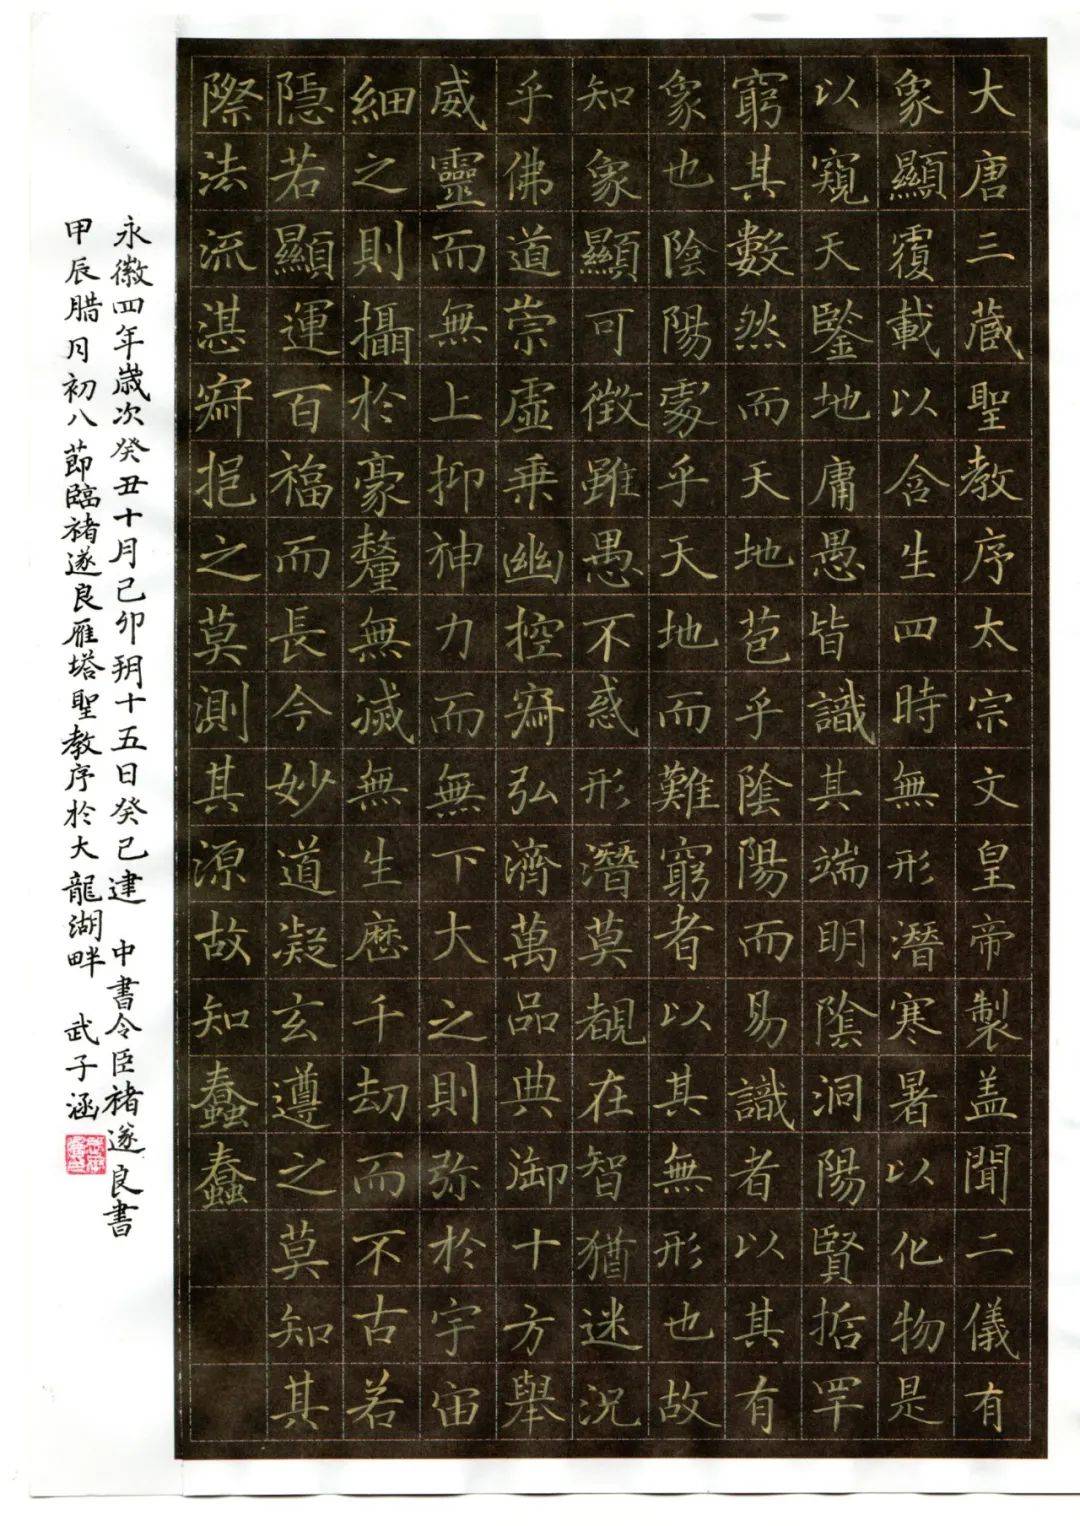 大唐三蔵聖教序太宗文皇帝製盖聞二儀有
象顯覆載以含生四時無形潛寒暑以化物是
以窺天鑒地庸愚皆識其端明陰洞陽賢哲罕
窮其數然而天地苞乎陰陽而易識者以其有
象也陰陽處乎天地而難窮者以其無形也故
知象顯可徵雖愚不惑形潛莫覩在智猶迷況
乎佛道崇虛乗幽控寂弘濟萬品典御十方舉
威靈而無上抑神力而無下大之則弥於宇宙
細之則攝於豪釐無滅無生歷千劫而不古若
隱若顯運百福而長今妙道凝玄遵之莫知其
際法流湛寂挹之莫測其源故知蠢蠢
永徽四年歲次癸丑十月己卯朔十五日癸巳建 中書令臣褚遂良書
甲辰腊月初八節臨褚遂良雁塔聖教序於大龍湖畔 武子涵